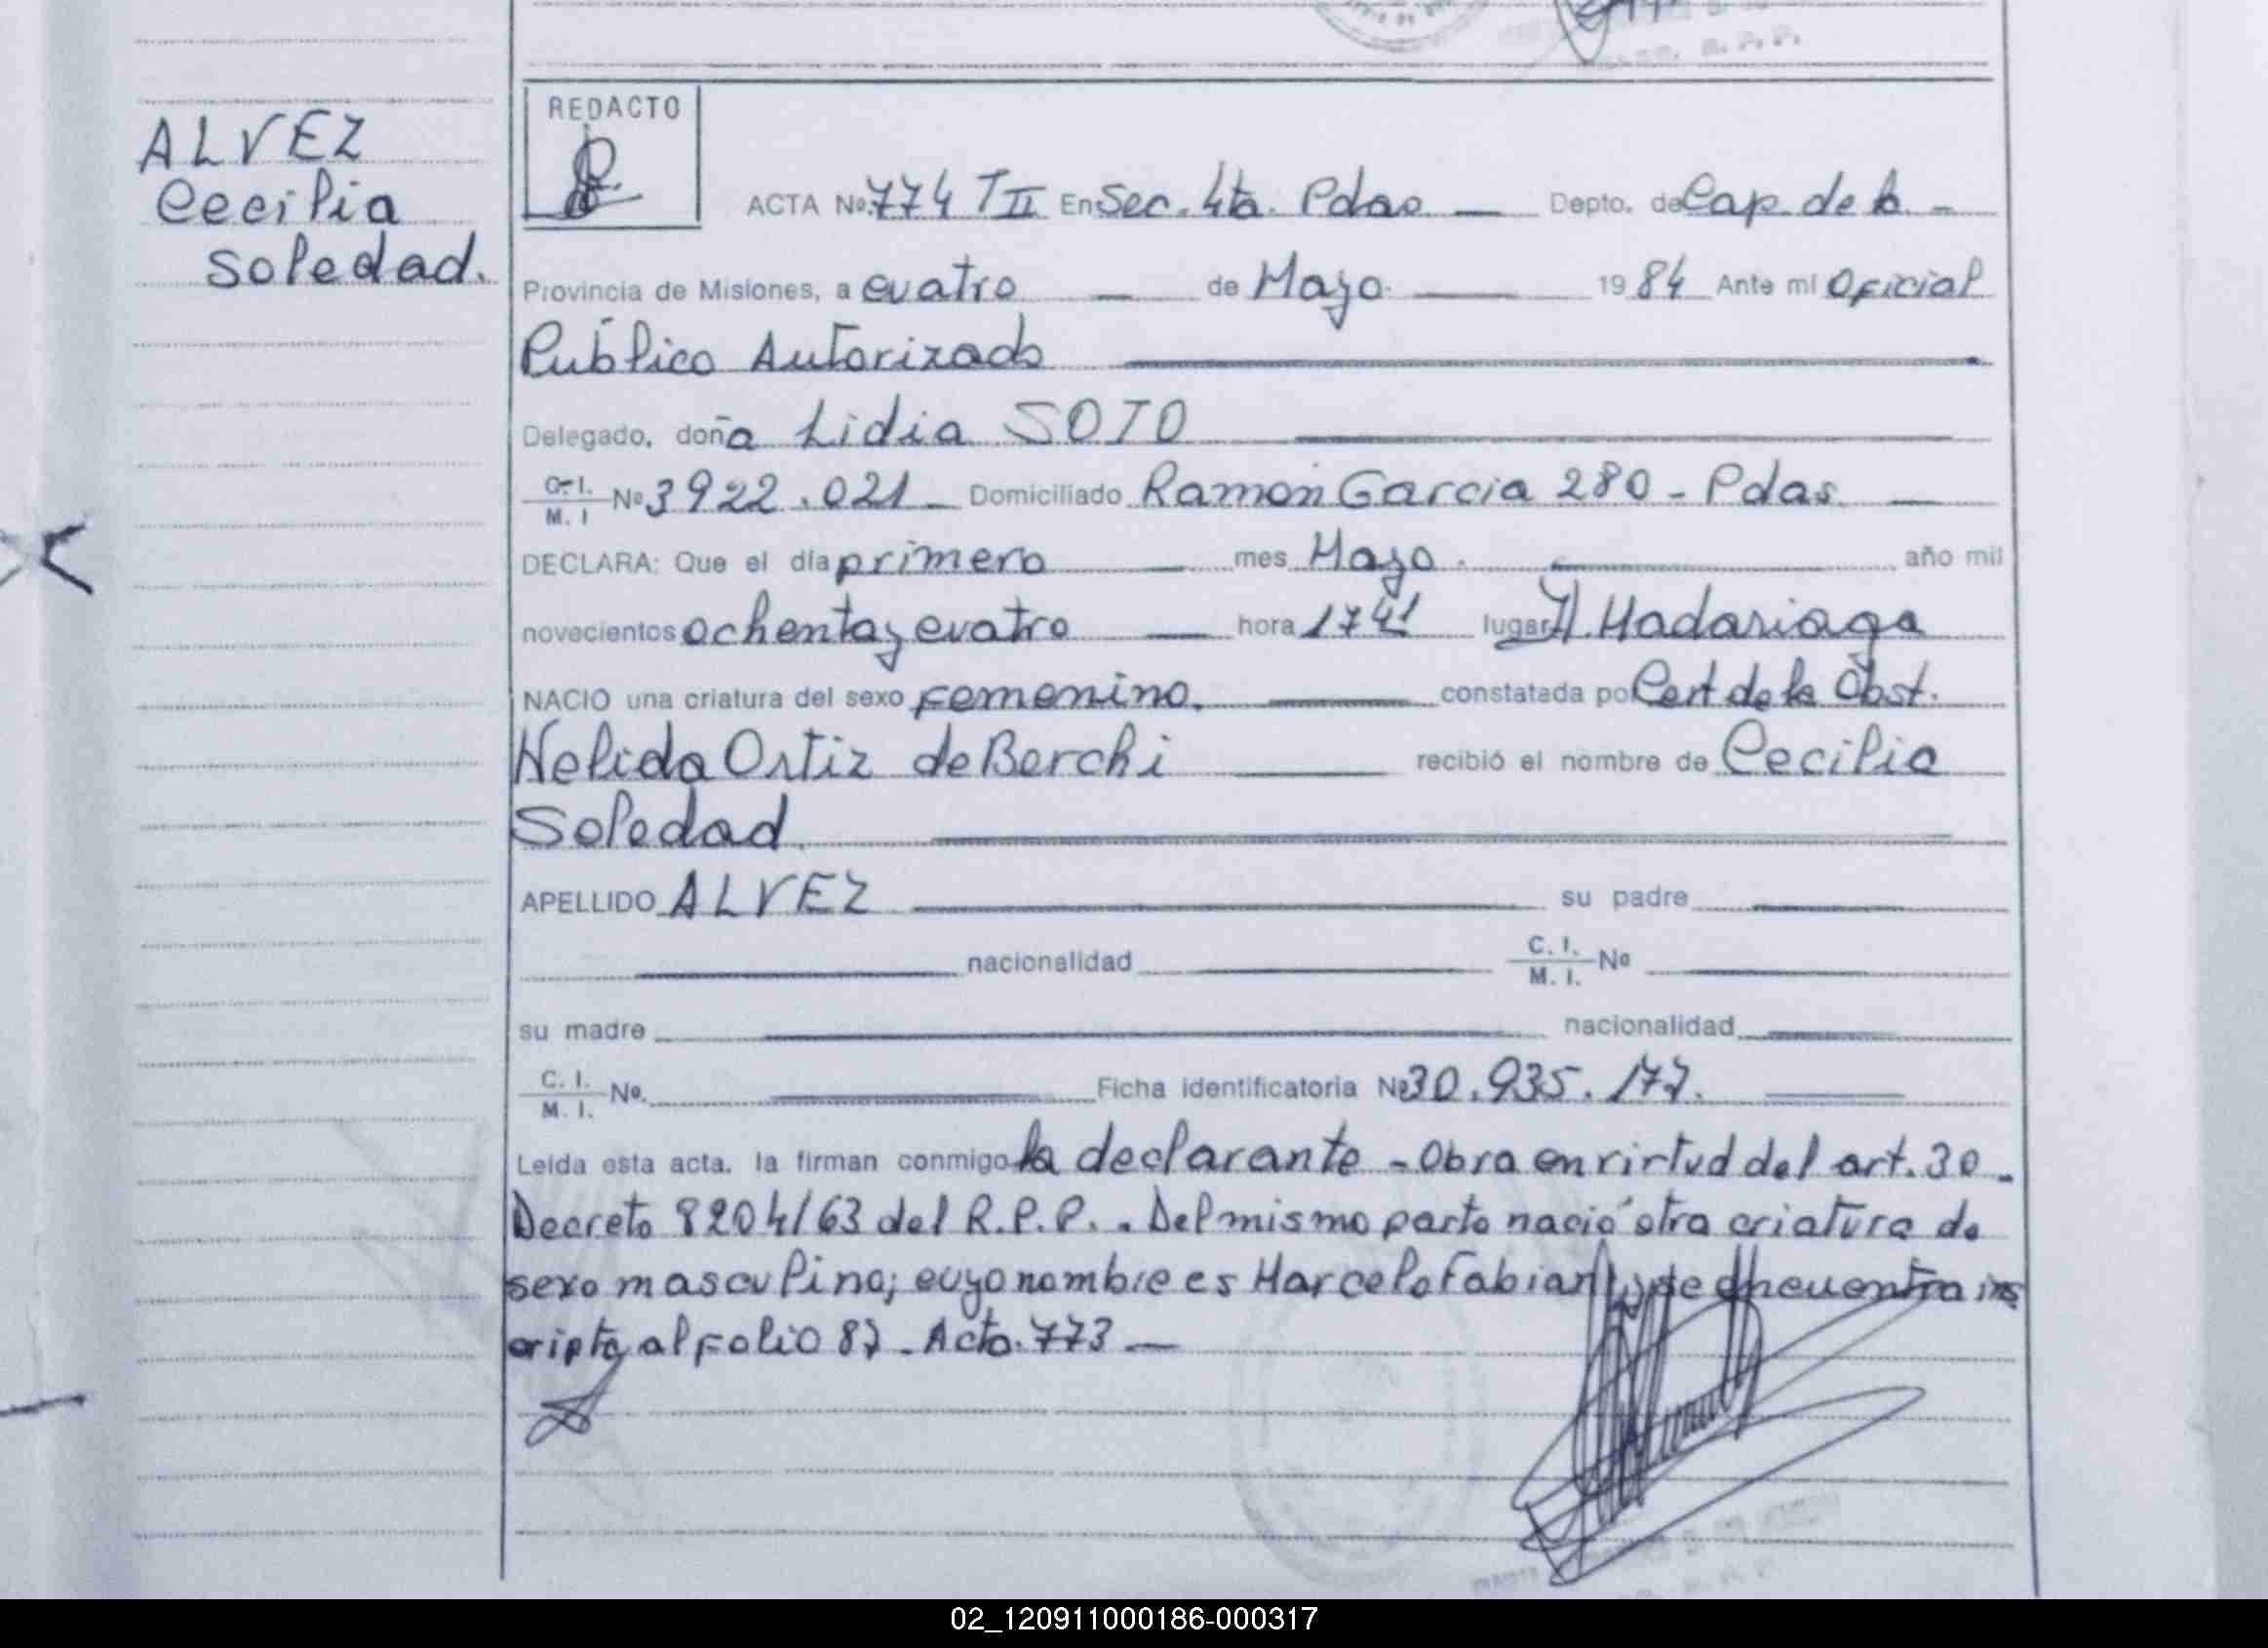 ALVEZ
Cecilia
Soledad.
REDACTO
ACTA No. 774 T II En Sec. 4ta. Pdas — Depto. de Cap. de la -
Provincia de Misiones, a cuatro — de Mayo. — 1984 Ante mi Oficial
Público Autorizado
Delegado, doña Lidia SOTO
C. I. / M. I Nº 3922.021 - Domiciliado Ramón Garcia 280 - Pdas. —
DECLARA: Que el día primero — mes Mayo. — año mil
novecientos ochenta y cuatro — hora 1741 lugar H. Madariaga
NACIO una criatura del sexo femenino. — constatada por Cert de la Obst.
Nelida Ortiz de Berchi — recibió el nombre de Cecilia
Soledad.
APELLIDO ALVEZ — su padre —
— nacionalidad — C. I. / M. I. Nº —
su madre — nacionalidad —
C. I. / M. I. Nº. — Ficha identificatoria Nº 30.935.177. —
Leída esta acta, la firman conmigo la declarante - Obra en virtud del art. 30 -
Decreto 8204/63 del R.P.P. . Del mismo parto nació otra criatura de
sexo masculino; cuyo nombre es Marcelo Fabian y se encuentra ins
cripto al folio 87 - Acta. 773 —
02_120911000186-000317